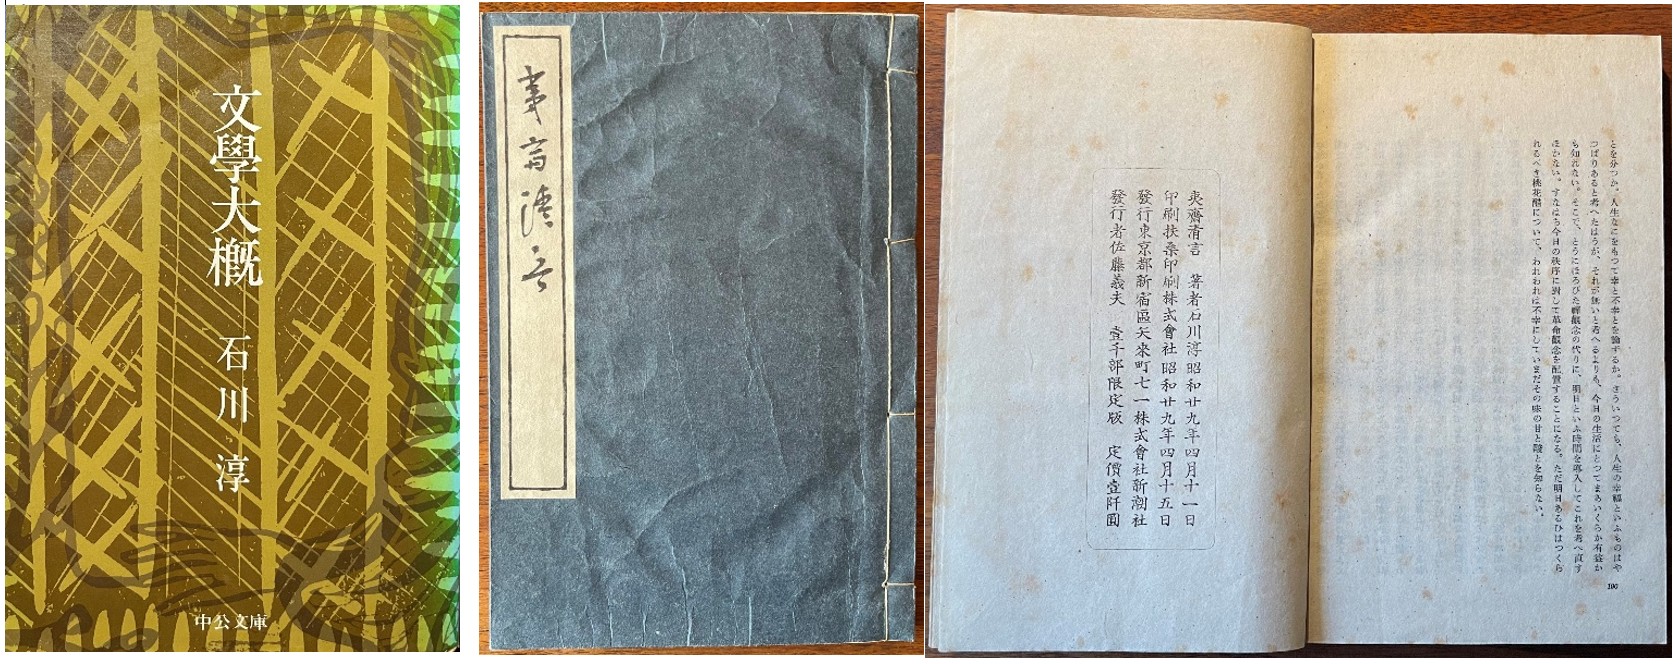 文學大概
石川淳
中公文庫
夷齋清言
夷齋清言 著者石川淳 昭和廿九年四月十一日
印刷扶桑印刷株式會社 昭和廿九年四月十五日
發行東京都新宿區矢來町七一株式會社新潮社
發行者佐藤義夫 壹千部限定版 定價壹阡圓
とを分つか。人生なにをもつて幸と不幸とを論ずるか。さういつても、人生の幸福といふものはや
つぱりあると考へたはうが、それが無いと考へるよりも、今日の生活にとつてまあいくらか有益か
も知れない。そこで、とうにほろびた禪觀念の代りに、明日といふ時間を導入してこれを考へ直す
ほかない。すなはち今日の秩序に對して革命觀念を配置することになる。ただ明日あるひはつくら
れるべき桃花醋について、われわれは不幸にしていまだその味の甘と酸とを知らない。
190